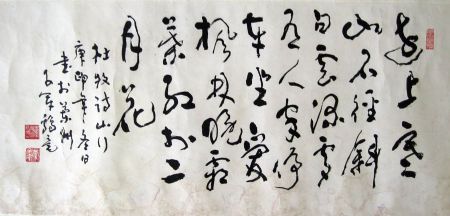 遠上寒
山石徑斜
白雲深處
有人家停
車坐愛
楓林晚霜
葉紅於二
月花
杜牧詩山行
年冬日
書於蘇州